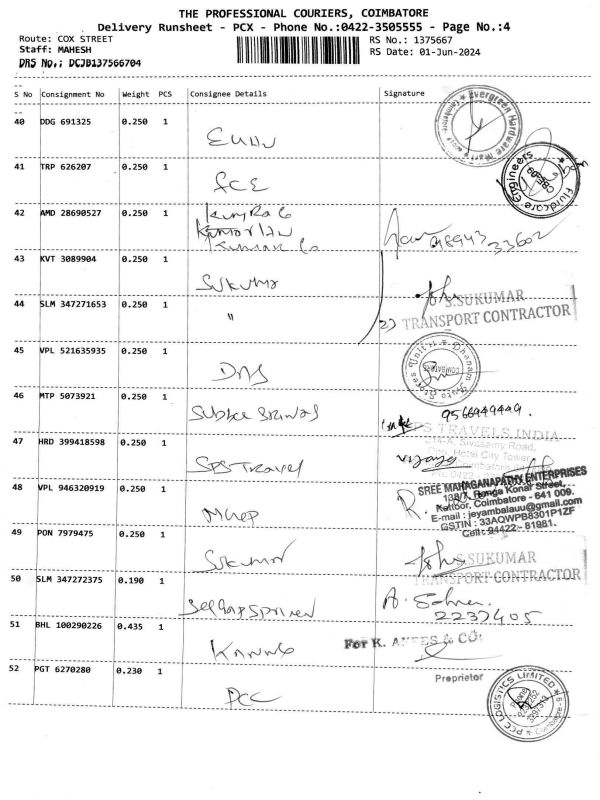 THE PROFESSIONAL COURIERS, COIMBATORE
Delivery Runsheet - PCX - Phone No.:0422-3505555 - Page No.:4
Route: COX STREET
RS No.: 1375667
Staff: MAHESH
RS Date: 01-Jun-2024
DRS No.; DCJB137566704
S No Consignment No Weight PCS Consignee Details Signature
40 DDG 691325 0.250 1
Evergreen Hardware Mart
41 TRP 626207 0.250 1
FCE
Fluidcare Engineers
42 AMD 28690527 0.250 1
98943 33602
43 KVT 3089904 0.250 1
Sukumar
S.SUKUMAR
44 SLM 347271653 0.250 1 "
2) TRANSPORT CONTRACTOR
45 VPL 521635935 0.250 1
DAS
Dhanam Auto Stores Unit II
COIMBATORE
46 MTP 5073921 0.250 1
9566949449.
SPS TRAVELS INDIA
214-A, Sivasamy Road,
47 HRD 399418598 0.250 1
Hotel City Tower
SPS Travel
vijaya
48 VPL 946320919 0.250 1
SREE MAHAGANAPATHY ENTERPRISES
138/7, Ranga Konar Street,
Kattoor, Coimbatore - 641 009.
E-mail : jeyambalauu@gmail.com
GSTIN : 33AQWPB8301P1ZF
Cell : 94422 - 81981.
49 PON 7979475 0.250 1
Sukumar
S.SUKUMAR
TRANSPORT CONTRACTOR
50 SLM 347272375 0.190 1
2237405
51 BHL 100290226 0.435 1
For K. & CO;
52 PGT 6270280 0.230 1
Proprietor
PCC
PCC LOGISTICS LIMITED
Phone